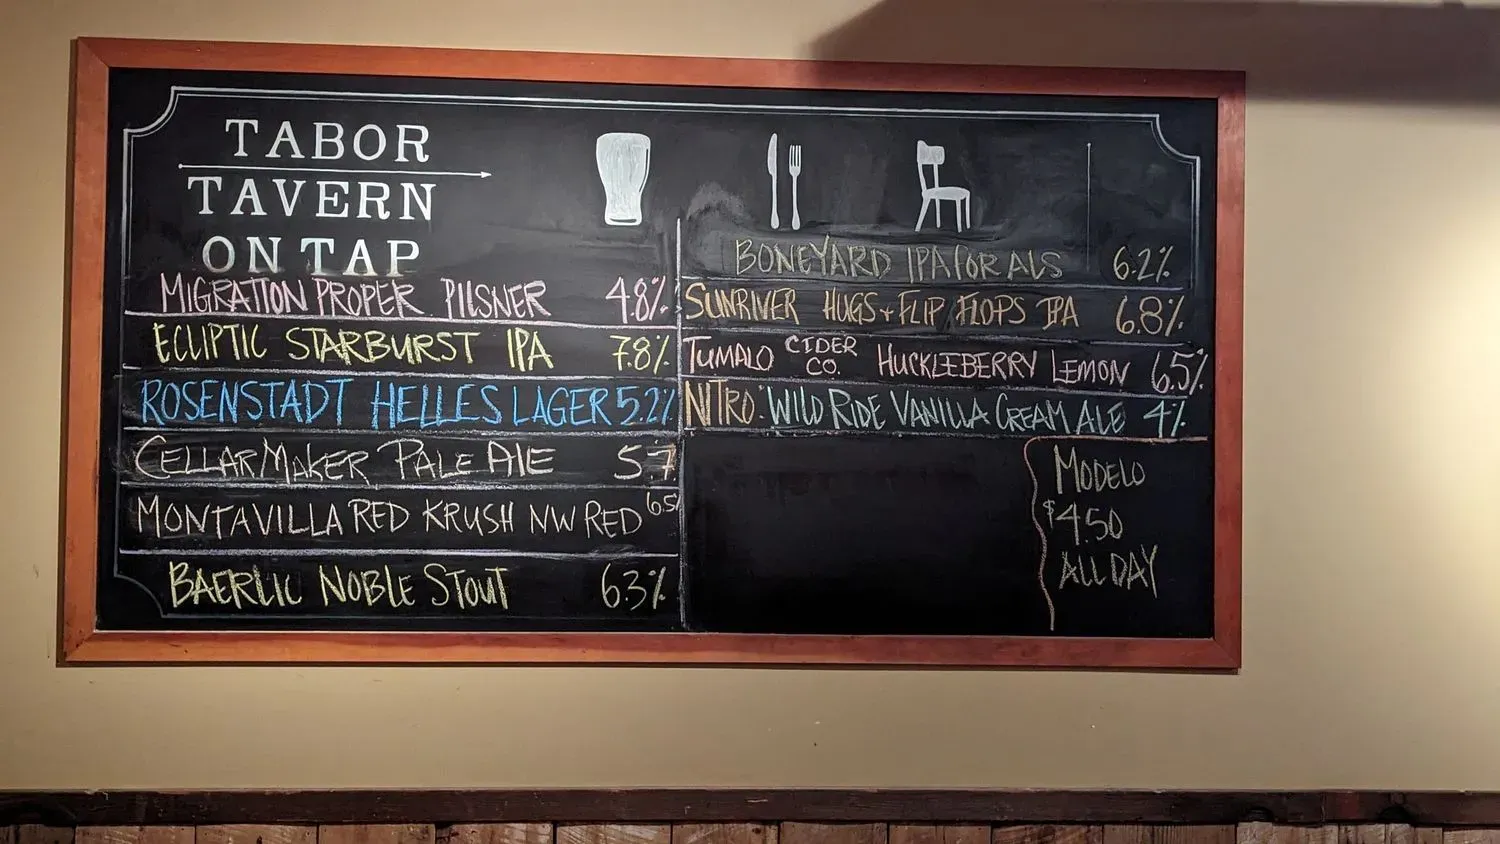 TABOR
TAVERN
ON TAP
MIGRATION PROPER PILSNER 4.8%
ECLIPTIC STARBURST IPA 7.8%
ROSENSTADT HELLES LAGER 5.2%
CELLARMAKER PALE ALE 5.7
MONTAVILLA RED KRUSH NW RED 6.5
BAERLIC NOBLE STOUT 6.3%
BONEYARD IPA FOR ALS 6.2%
SUNRIVER HUGS + FLIP FLOPS IPA 6.8%
TUMALO CIDER CO. HUCKLEBERRY LEMON 6.5%
NITRO: WILD RIDE VANILLA CREAM ALE 4%
MODELO
$4.50
ALL DAY